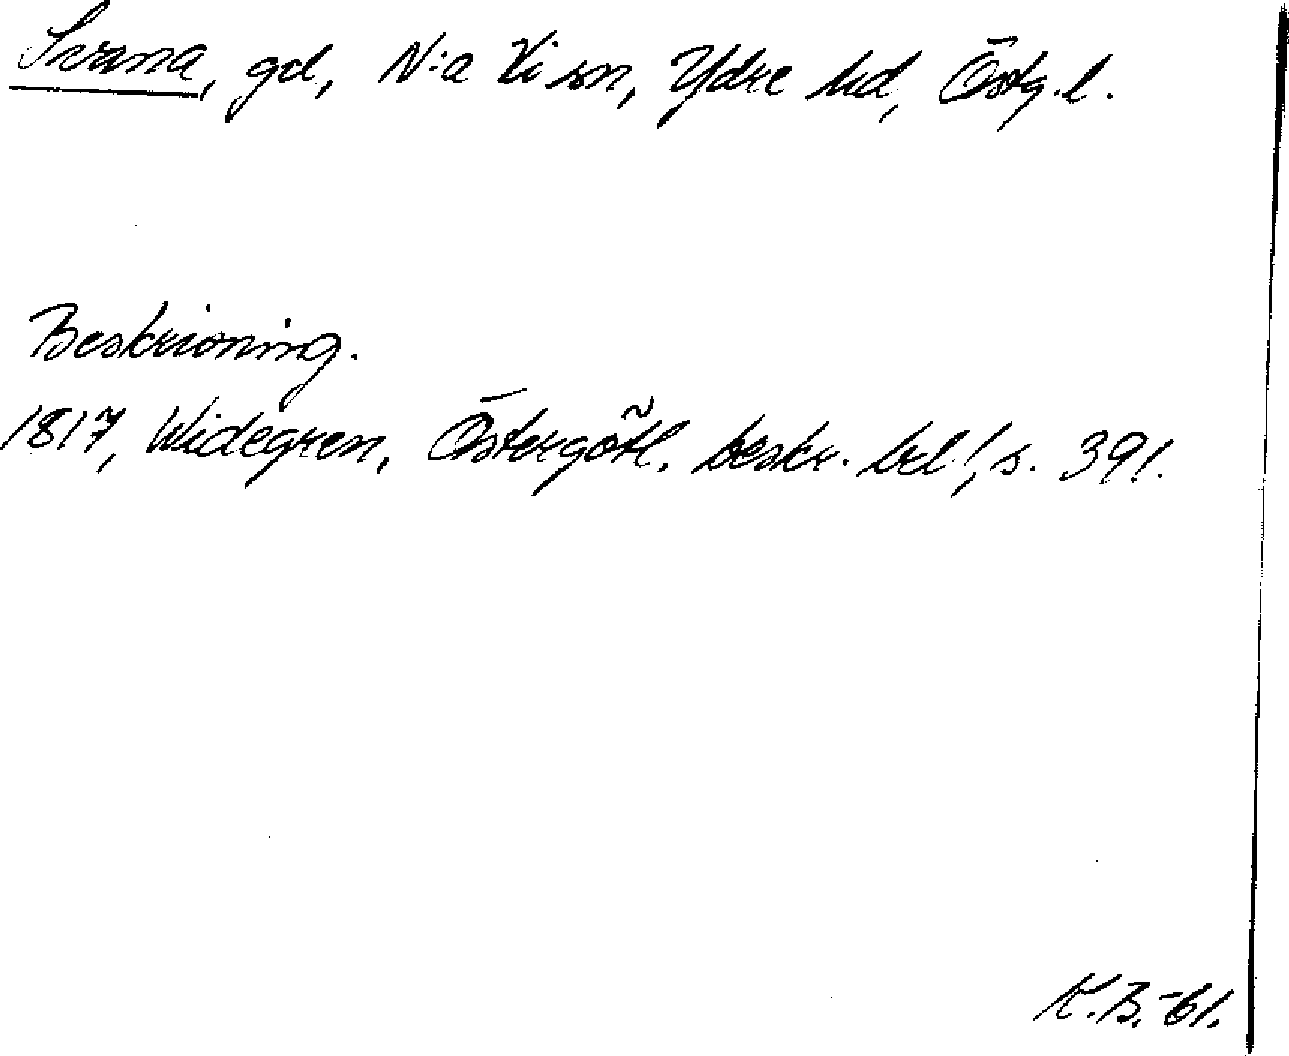 Svana, gd, N:a Vi sn, Ydre hd, Östg.l.
Beskrivning.
1817, Widegren, Östergötl. beskr. bd 1, s. 391.
K.B.-61.